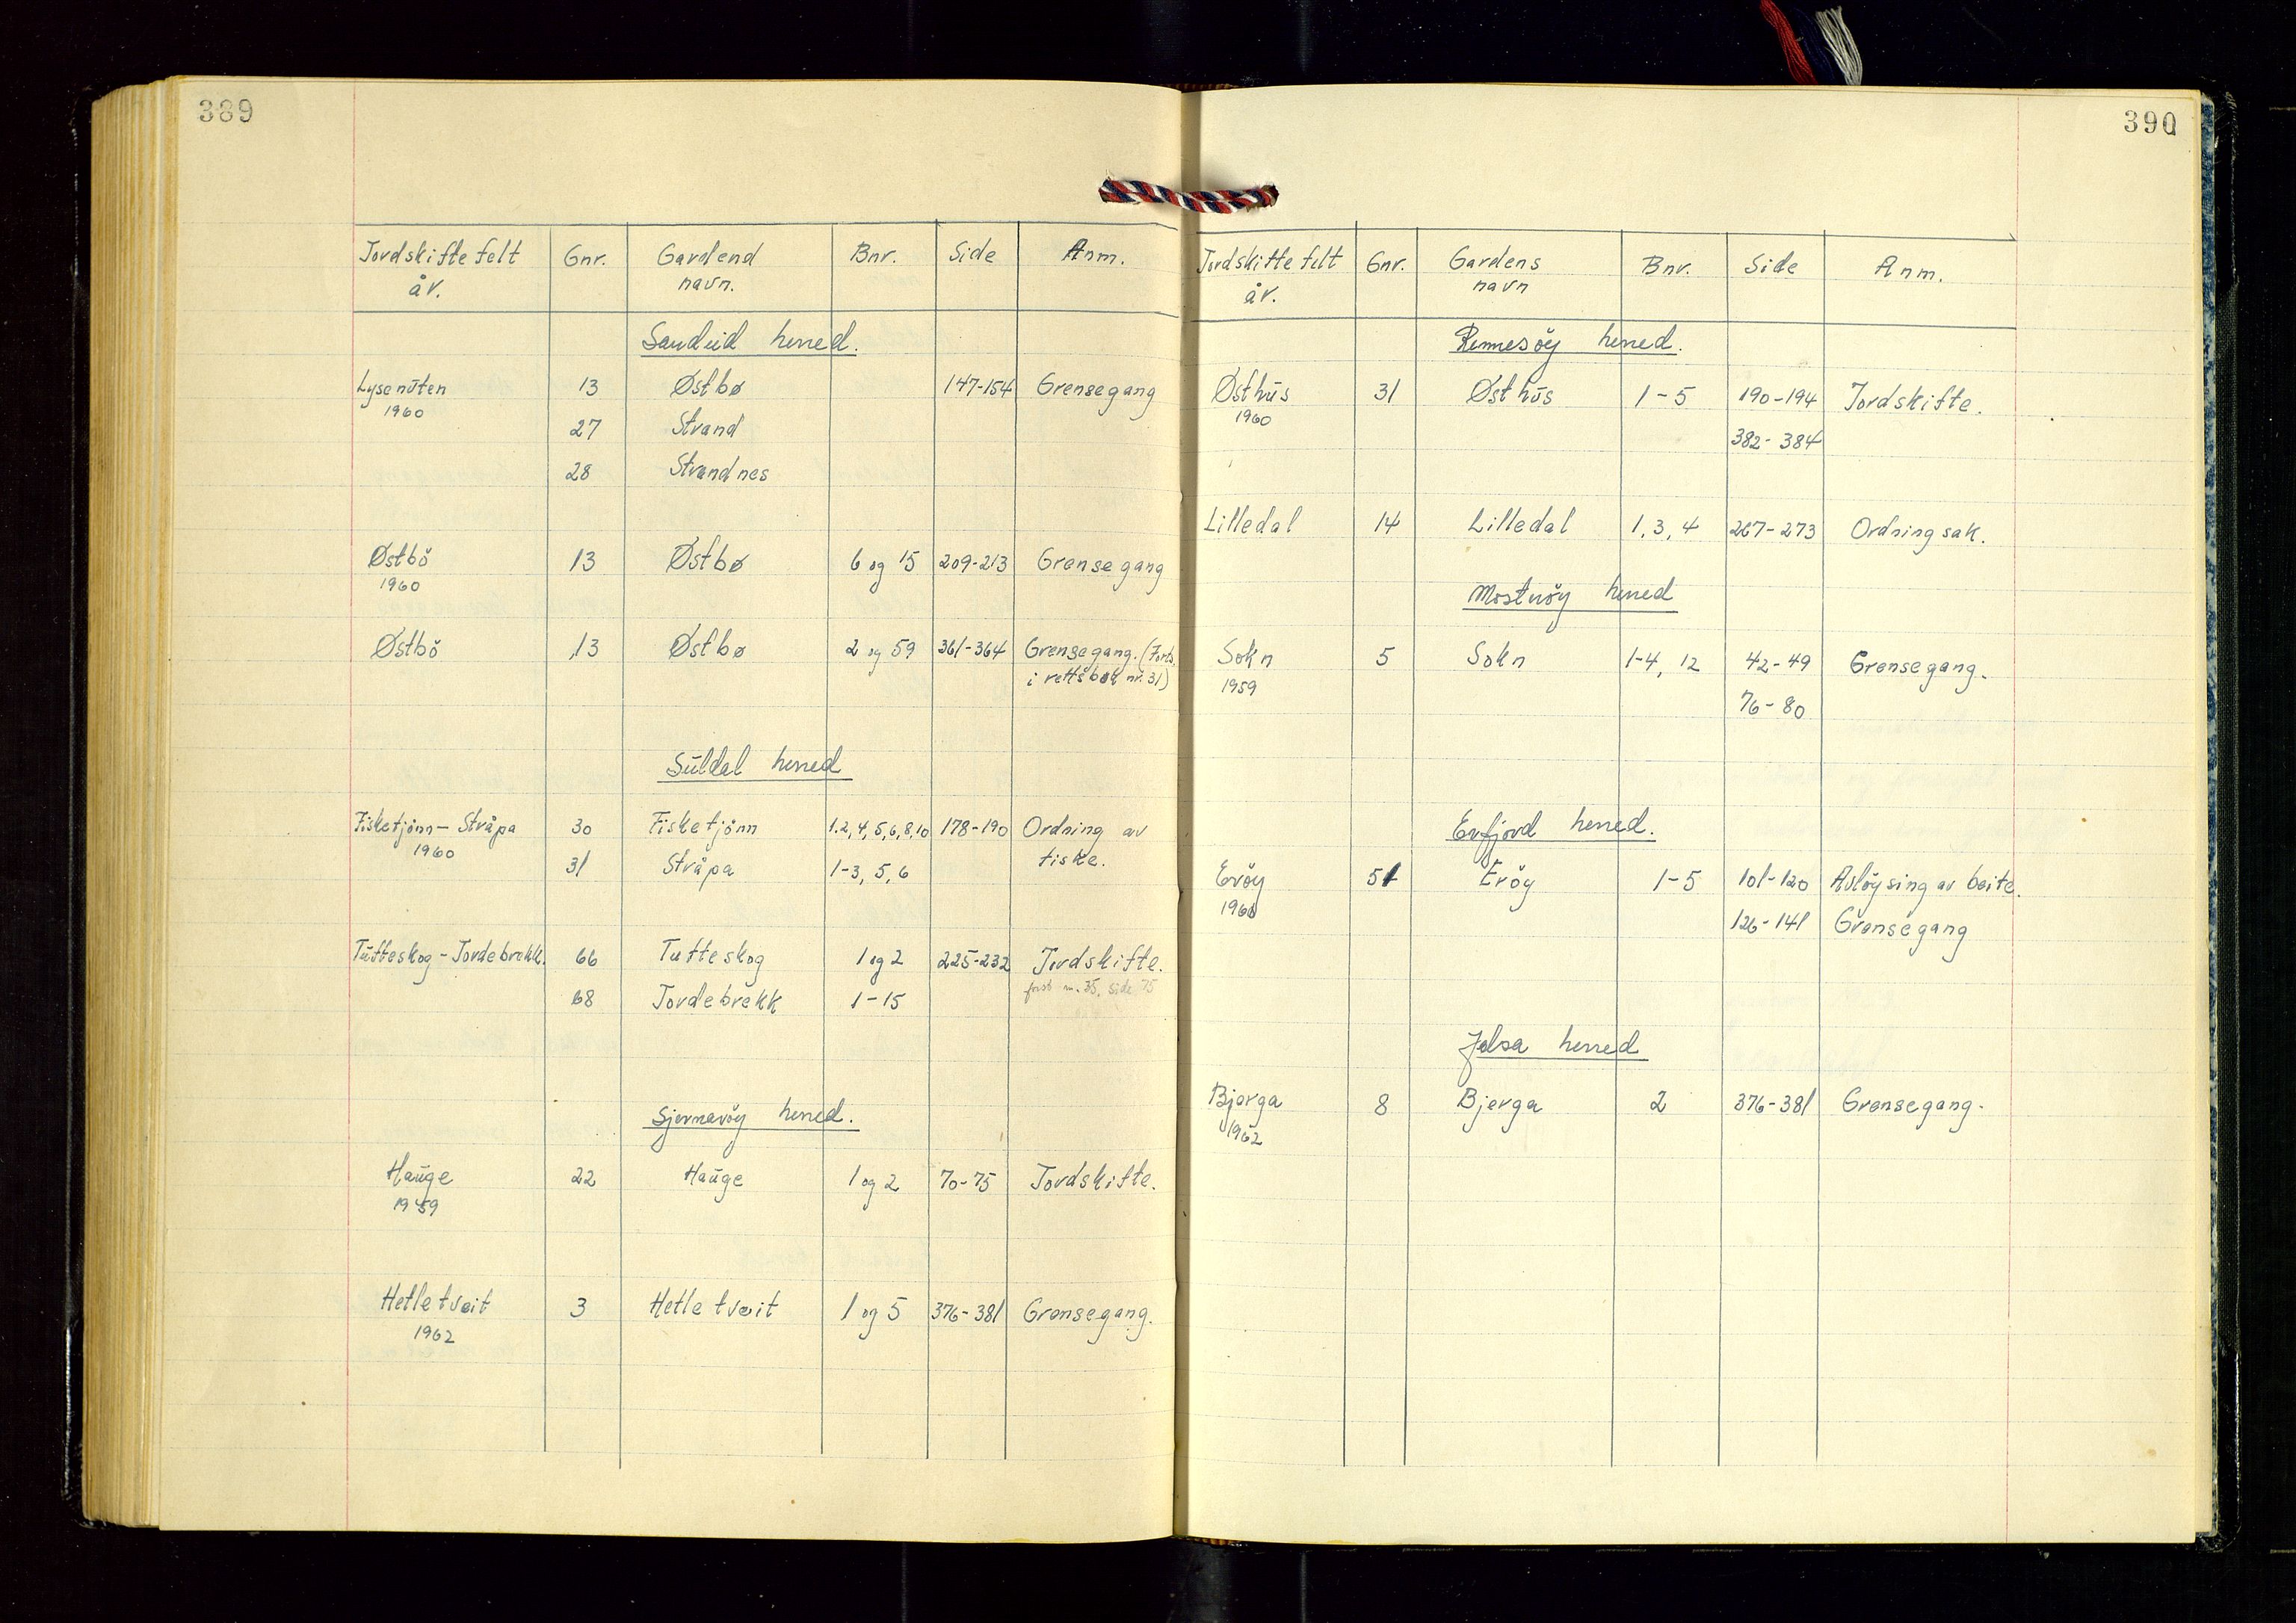 389
Jordskiftefelt Gnr. Gardend Bnr. Side Anm.
år. navn.
Sandeid herred.
Lysenuten 13 Østbø 147-154 Grensegang
1960
27 Strand
28 Strandnes
Østbö 13 Østbø 6 og 15 209-213 Grensegang
1960
Østbö 13 Østbø 2 og 59 361-364 Grensegang. (Forts.
i rettsbok nr. 31)
Suldal herred
Fisketjönn - Stråpa 30 Fisketjönn 1.2, 4, 5, 6, 8, 10 178-190 Ordning av
1960 31 Stråpa 1-3, 5, 6 fiske.
Tufteskog - Jordebrekk. 66 Tufteskog 1 og 2 225-232 Jordskifte.
68 Jordebrekk 1-15 side 75
Sjernaröy herred.
Hauge 22 Hauge 1 og 2 70-75 Jordskifte.
1959
Hetletveit 3 Hetletveit 1 og 5 376-381 Grensegang.
1962
390
Jordskiftefelt Gnr. Gardens Bnr. Side Anm.
år. navn
Rennesöy herred.
Østhus 31 Østhus 1-5 190-194 Jordskifte.
1960 382-384
Lilledal 14 Lilledal 1, 3, 4 267-273 Ordningsak.
Mosteröy herred
Sokn 5 Sokn 1-4, 12 42-49 Grensegang.
1959 76-80
Erfjord herred.
Eröy 51 Eröy 1-5 101-120 Avlöysing av beite.
1960 126-141 Grensegang
Jelsa herred
Bjerga 8 Bjerga 2 376-381 Grensegang.
1962